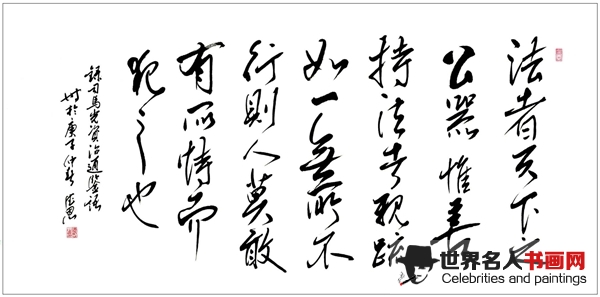 法者天下之
公器惟善
持法者親疏
如一無所不
行則人莫敢
有所恃而
犯之也
録司馬光資治通鑒語
時於庚子仲
世界名人书画网
Celebrities and paintings